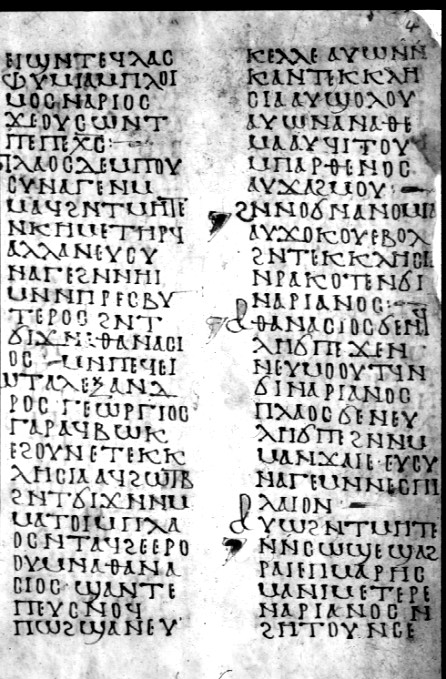 ⲉⲓⲱⲛⲧⲉϥⲗⲁⲥ
ⲫⲩⲙⲓⲁⲙⲡⲗⲟⲓ
ⲙⲟⲥⲛⲁⲣⲓⲟⲥ
ϫⲉⲟⲩⲥⲱⲛⲧ
ⲡⲉⲡⲉⲭⲥ:
ⲡⲗⲁⲟⲥⲇⲉⲙⲡⲟⲩ
ⲥⲩⲛⲁⲅⲉⲛⲙ
ⲙⲁϥϩⲛⲧⲙⲏⲧⲉ
ⲛⲕⲏⲙⲉⲧⲏⲣϥ
ⲁⲗⲗⲁⲛⲉⲩⲥⲩ
ⲛⲁⲅⲉϩⲛⲛⲏⲓ
ⲙⲛⲛⲡⲣⲉⲥⲃⲩ
ⲧⲉⲣⲟⲥϩⲛⲧ
ϭⲓϫⲛⲁⲑⲁⲛⲁⲥⲓ
ⲟⲥ ⲙⲛⲡⲉϥⲉⲓ
ⲱⲧⲁⲗⲉⲝⲁⲛⲇ
ⲣⲟⲥ ⲅⲉⲱⲣⲅⲓⲟⲥ
ⲅⲁⲣⲁϥⲃⲱⲕ
ⲉϩⲟⲩⲛⲉⲧⲉⲕⲕ
ⲗⲏⲥⲓⲁⲁϥϩⲱⲧⲃ
ϩⲛⲧϭⲓϫⲛⲛⲙ
ⲙⲁⲧⲟⲓⲙⲡⲗⲁ
ⲟⲥⲛⲧⲁϥϩⲉⲉⲣⲟ
ⲟⲩⲙⲛⲁⲑⲁⲛⲁ
ⲥⲓⲟⲥ ϣⲁⲛⲧⲉ
ⲡⲉⲩⲥⲛⲟϥ
ⲡⲱϩϣⲁⲛⲉⲩ
4
ⲕⲉⲗⲗⲉ ⲁⲩⲱⲛⲛ
ⲕⲁⲛⲧⲉⲕⲕⲗⲏ
ⲥⲓⲁⲁⲩϣⲟⲗⲟⲩ
ⲁⲩⲱⲛⲁⲛⲁⲑⲉ
ⲙⲁⲁⲩϥⲓⲧⲟⲩ
ⲙⲡⲁⲣⲑⲉⲛⲟⲥ
ⲁⲩϫⲁϩⲙⲟⲩ:
ϩⲛⲛⲟϭⲛⲁⲛⲟⲙⲓⲁ
ⲁⲩϫⲟⲕⲟⲩⲉⲃⲟⲗ
ϩⲛⲧⲉⲕⲕⲗⲏⲥⲓⲁ
ⲛⲣⲁⲕⲟⲧⲉⲛϭⲓ
ⲛⲁⲣⲓⲁⲛⲟⲥ:
ⲁⲑⲁⲛⲁⲥⲓⲟⲥϭⲉⲙ
ⲗⲏϭⲡⲉϫⲉⲛ
ⲛⲉⲩⲙⲟⲟⲩⲧϥⲛ
ϭⲓⲛⲁⲣⲓⲁⲛⲟⲥ
ⲡⲗⲁⲟⲥϭⲉⲛⲉⲩ
ⲗⲏϭⲡⲉϩⲛⲛⲙ
ⲙⲁⲛϫⲁⲓⲉ·ⲉⲩⲥⲩ
ⲛⲁⲅⲉⲙⲛⲛⲉⲥⲡⲏ
ⲗⲁⲓⲟⲛ
ⲁⲩⲱϩⲛⲧⲙⲏⲧⲉ
ⲛⲛⲥⲱϣⲉⲙⲁϩ
ⲣⲁⲓⲉⲡⲙⲁⲣⲏⲥ
ⲙⲁⲛⲙⲉⲧⲉⲣⲉ
ⲛⲁⲣⲓⲁⲛⲟⲥ ⲛ
ϩⲏⲧⲟⲩ·ⲛⲥⲉ